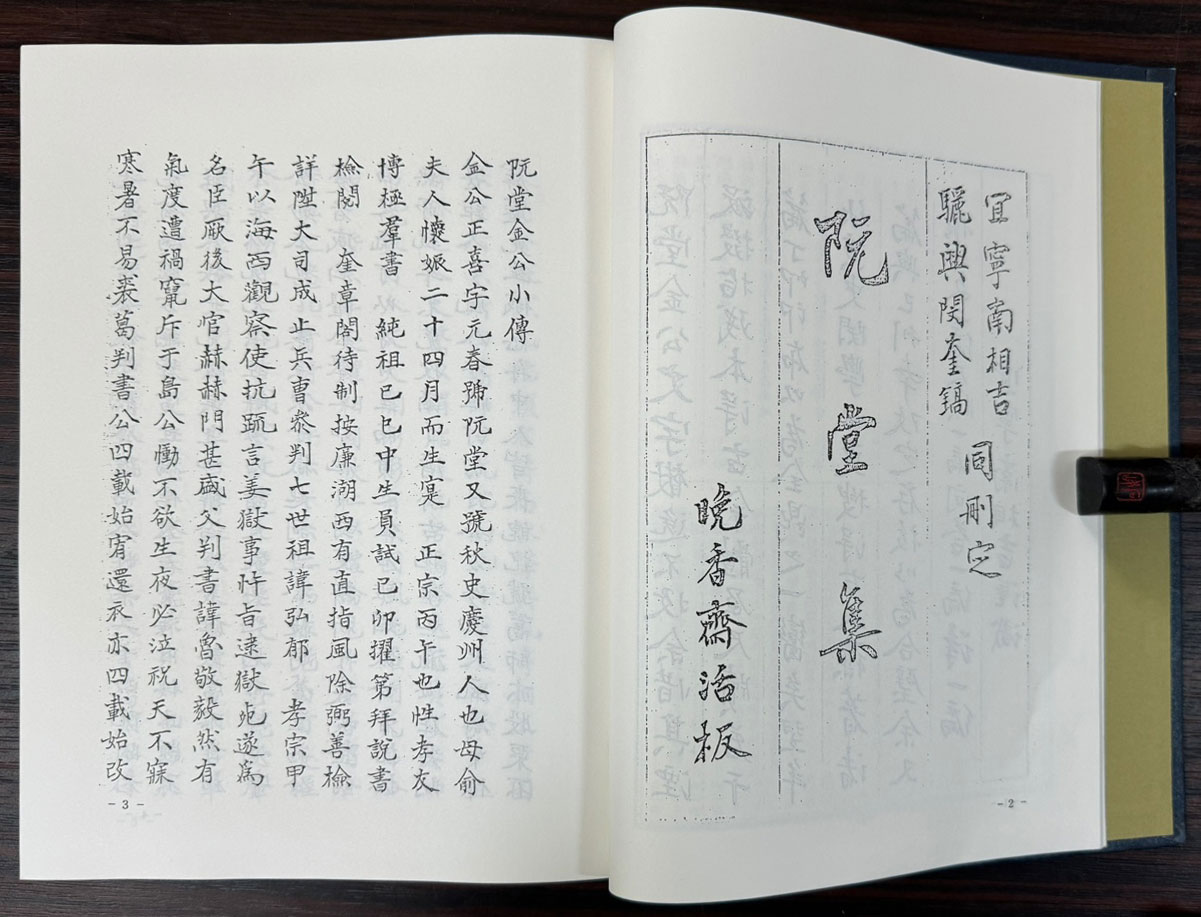 宜寧南相吉
驪興閔奎鎬
同刪定
阮堂集
晩香齋活板
- 2 -
阮堂金公小傳
金公正喜字元春號阮堂又號秋史慶州人也母俞
夫人懷娠二十四月而生寔 正宗丙午也性孝友
博極羣書 純祖己巳中生員試己卯擢第拜說書
檢閱 奎章閣待制按廉湖西有直指風除弼善檢
詳陞大司成止兵曺叅判七世祖諱弘郁 孝宗甲
午以海西觀察使抗疏言姜獄事忤旨逮獄死遂爲
名臣厥後大官赫赫門甚盛父判書諱魯敬毅然有
氣度遭禍竄斥于島公慟不欲生夜必泣祝天不寐
寒暑不易裘葛判書公四載始宥還衣亦四載始改
- 3 -